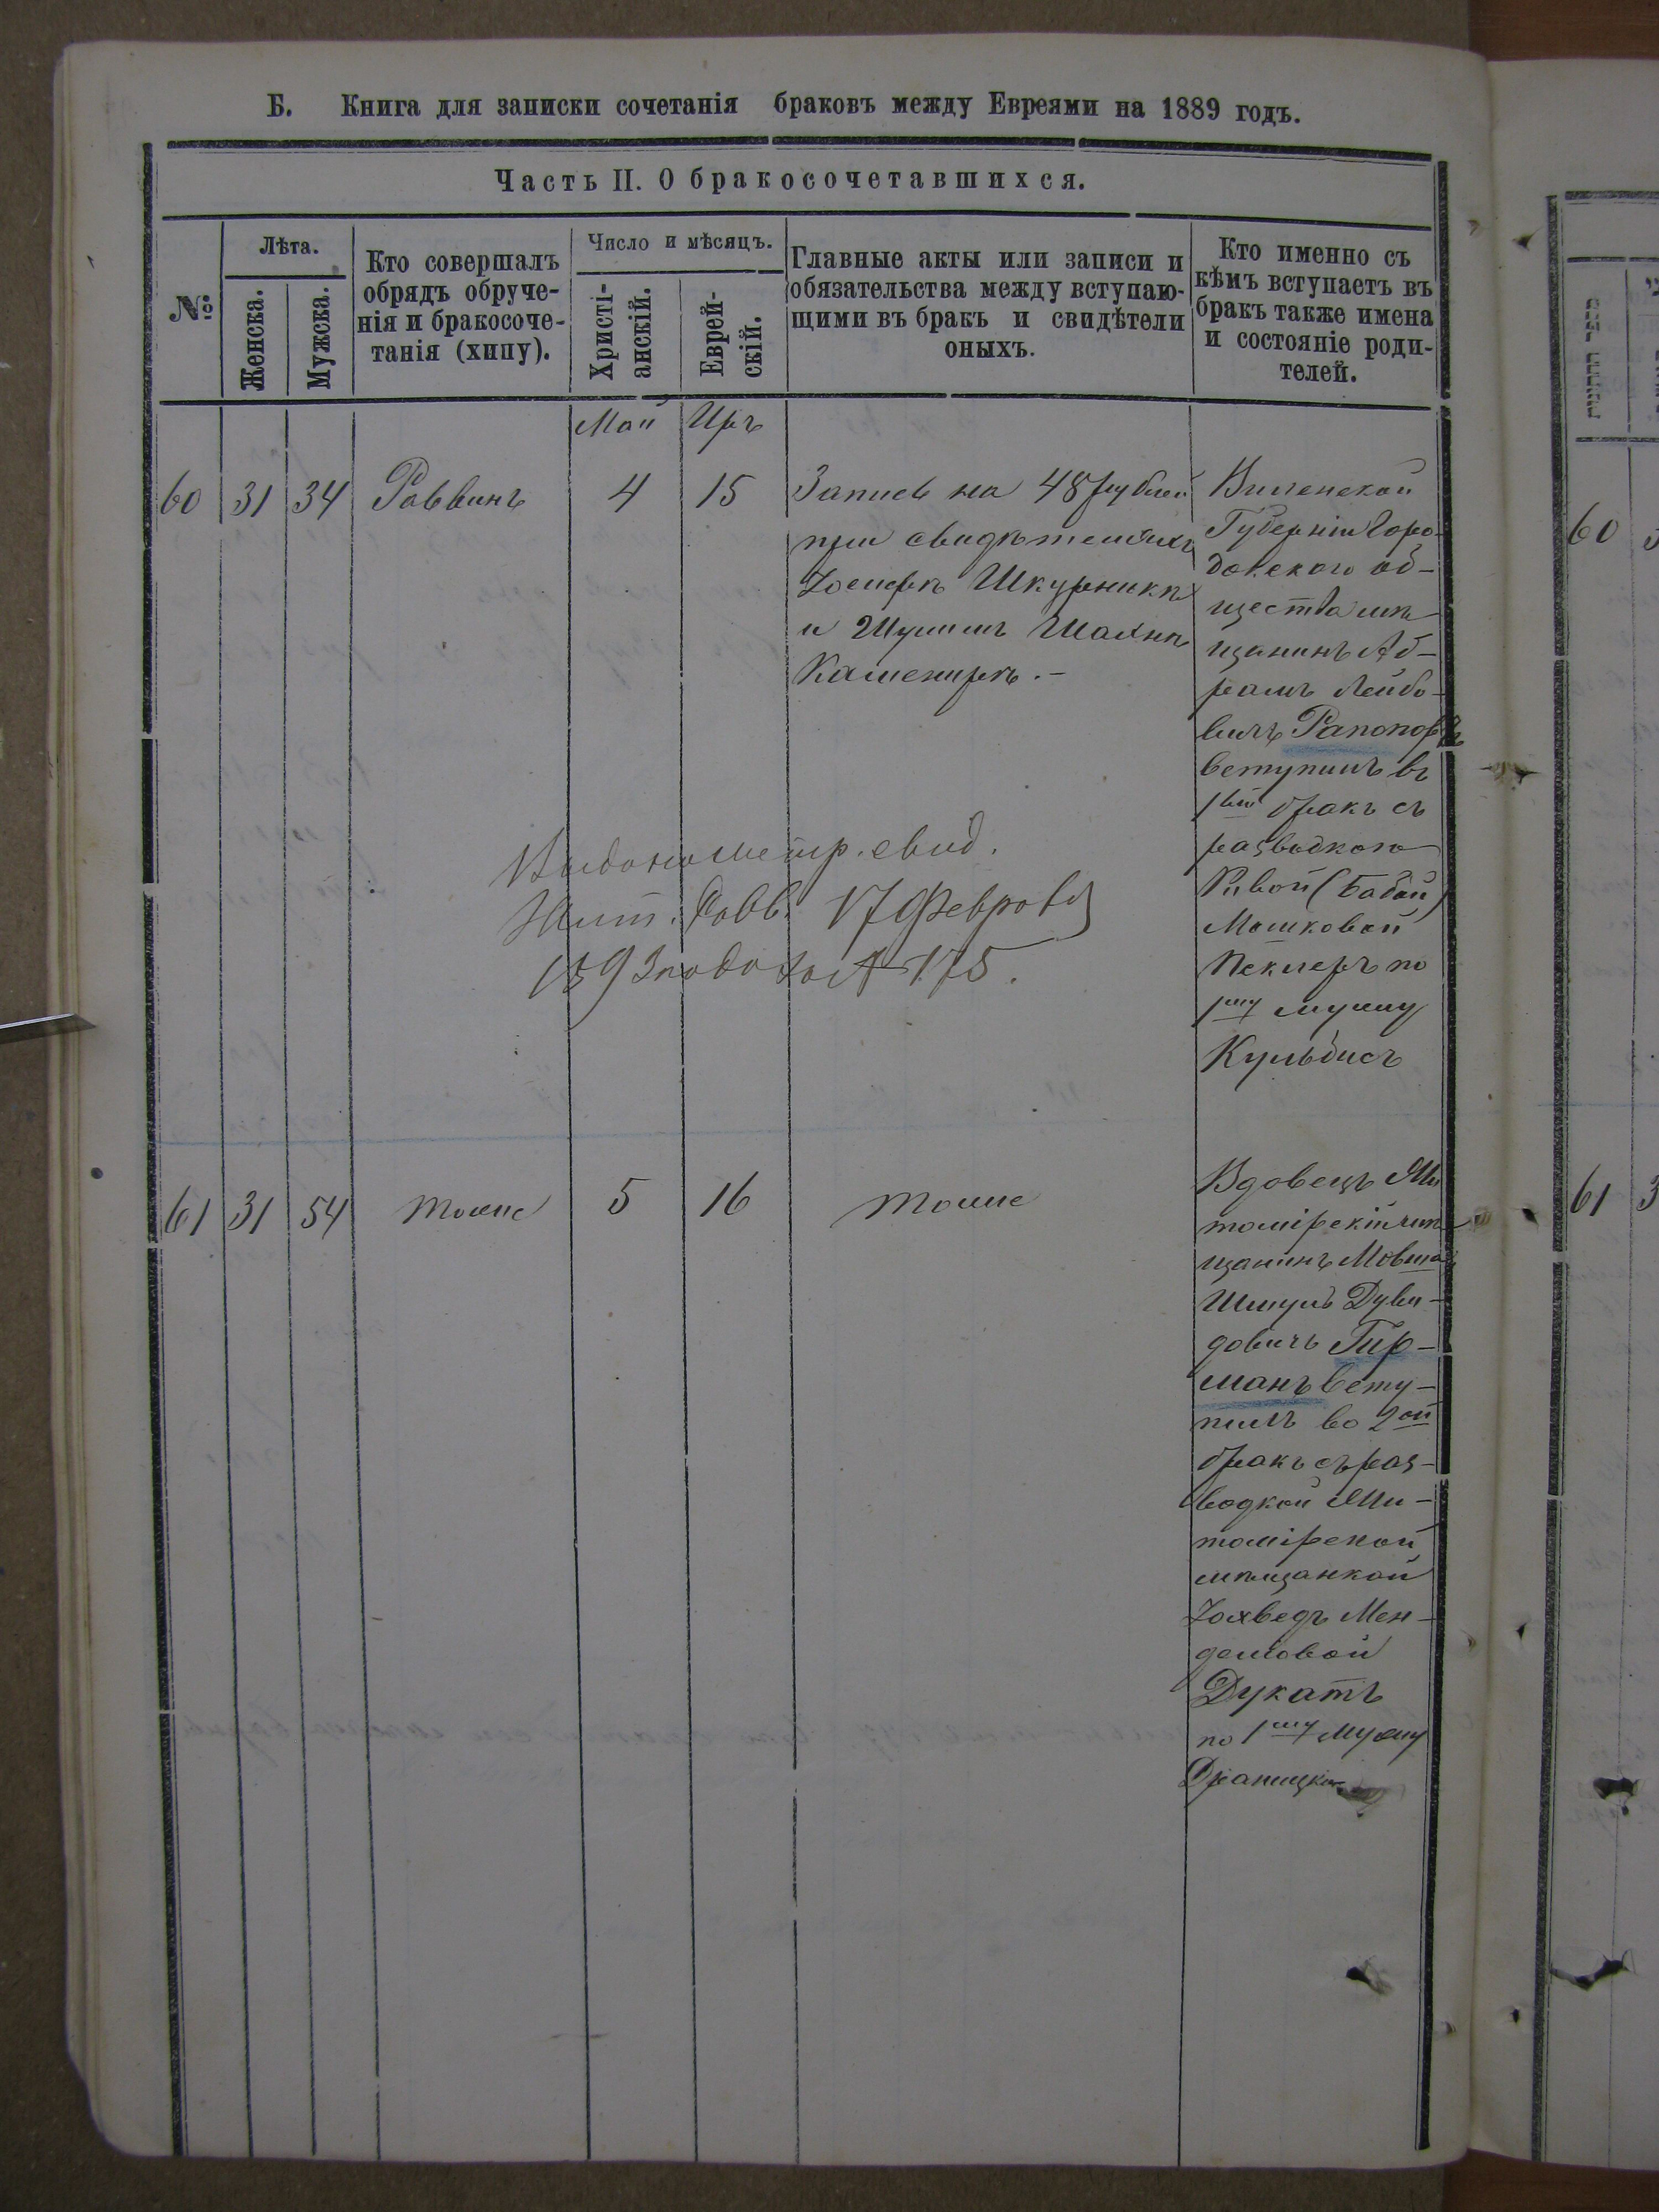 Б. Книга для записки сочетанія браковъ между Евреями на 1889 годъ.
Часть II. О бракосочетавшихся.
№
Лѣта.
Женска.
Мужска.
Кто совершалъ
обрядъ обруче-
нія и бракосоче-
танія (хипу).
Число и мѣсяцъ.
Христі-
анскій.
Еврей-
скій.
Главные акты или записи и
обязательства между вступаю-
щими въ бракъ и свидѣтели
оныхъ.
Кто именно съ
кѣмъ вступаетъ въ
бракъ также имена
и состояніе роди-
телей.
Май
Иръ
60
31
34
Раввинъ
4
15
Запись на 48 рублей
при свидѣтеляхъ
Іосифѣ Шкурникѣ
и Шулимѣ Шахнѣ
Каменирѣ.–
Виленской
Губерніи Горо-
докскаго об-
щества мѣ-
щанинъ Аб-
рамъ Лейбо-
вичъ Рапопортъ
вступилъ въ
1ый бракъ съ
разводкою
Ривой (Бабой)
Мошковой
Пеклеръ по
1му мужу
Кульбисъ
метр. свид.
Жит. Равв. 17 Февраля
1893 года за № 175.
61
31
54
тоже
5
16
тоже
Вдовецъ Жи
томірскій мѣ-
щанинъ Мовша
Шмуль Дуви-
довичъ Гир-
манъ всту-
пилъ во 2ой
бракъ съ раз-
водкой Жи-
томірской
мѣщанкой
Іохведъ Мен-
делевой
Дукатъ
по 1му мужу
60
61
3